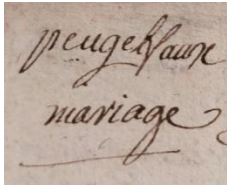 peugetVaux
mariage